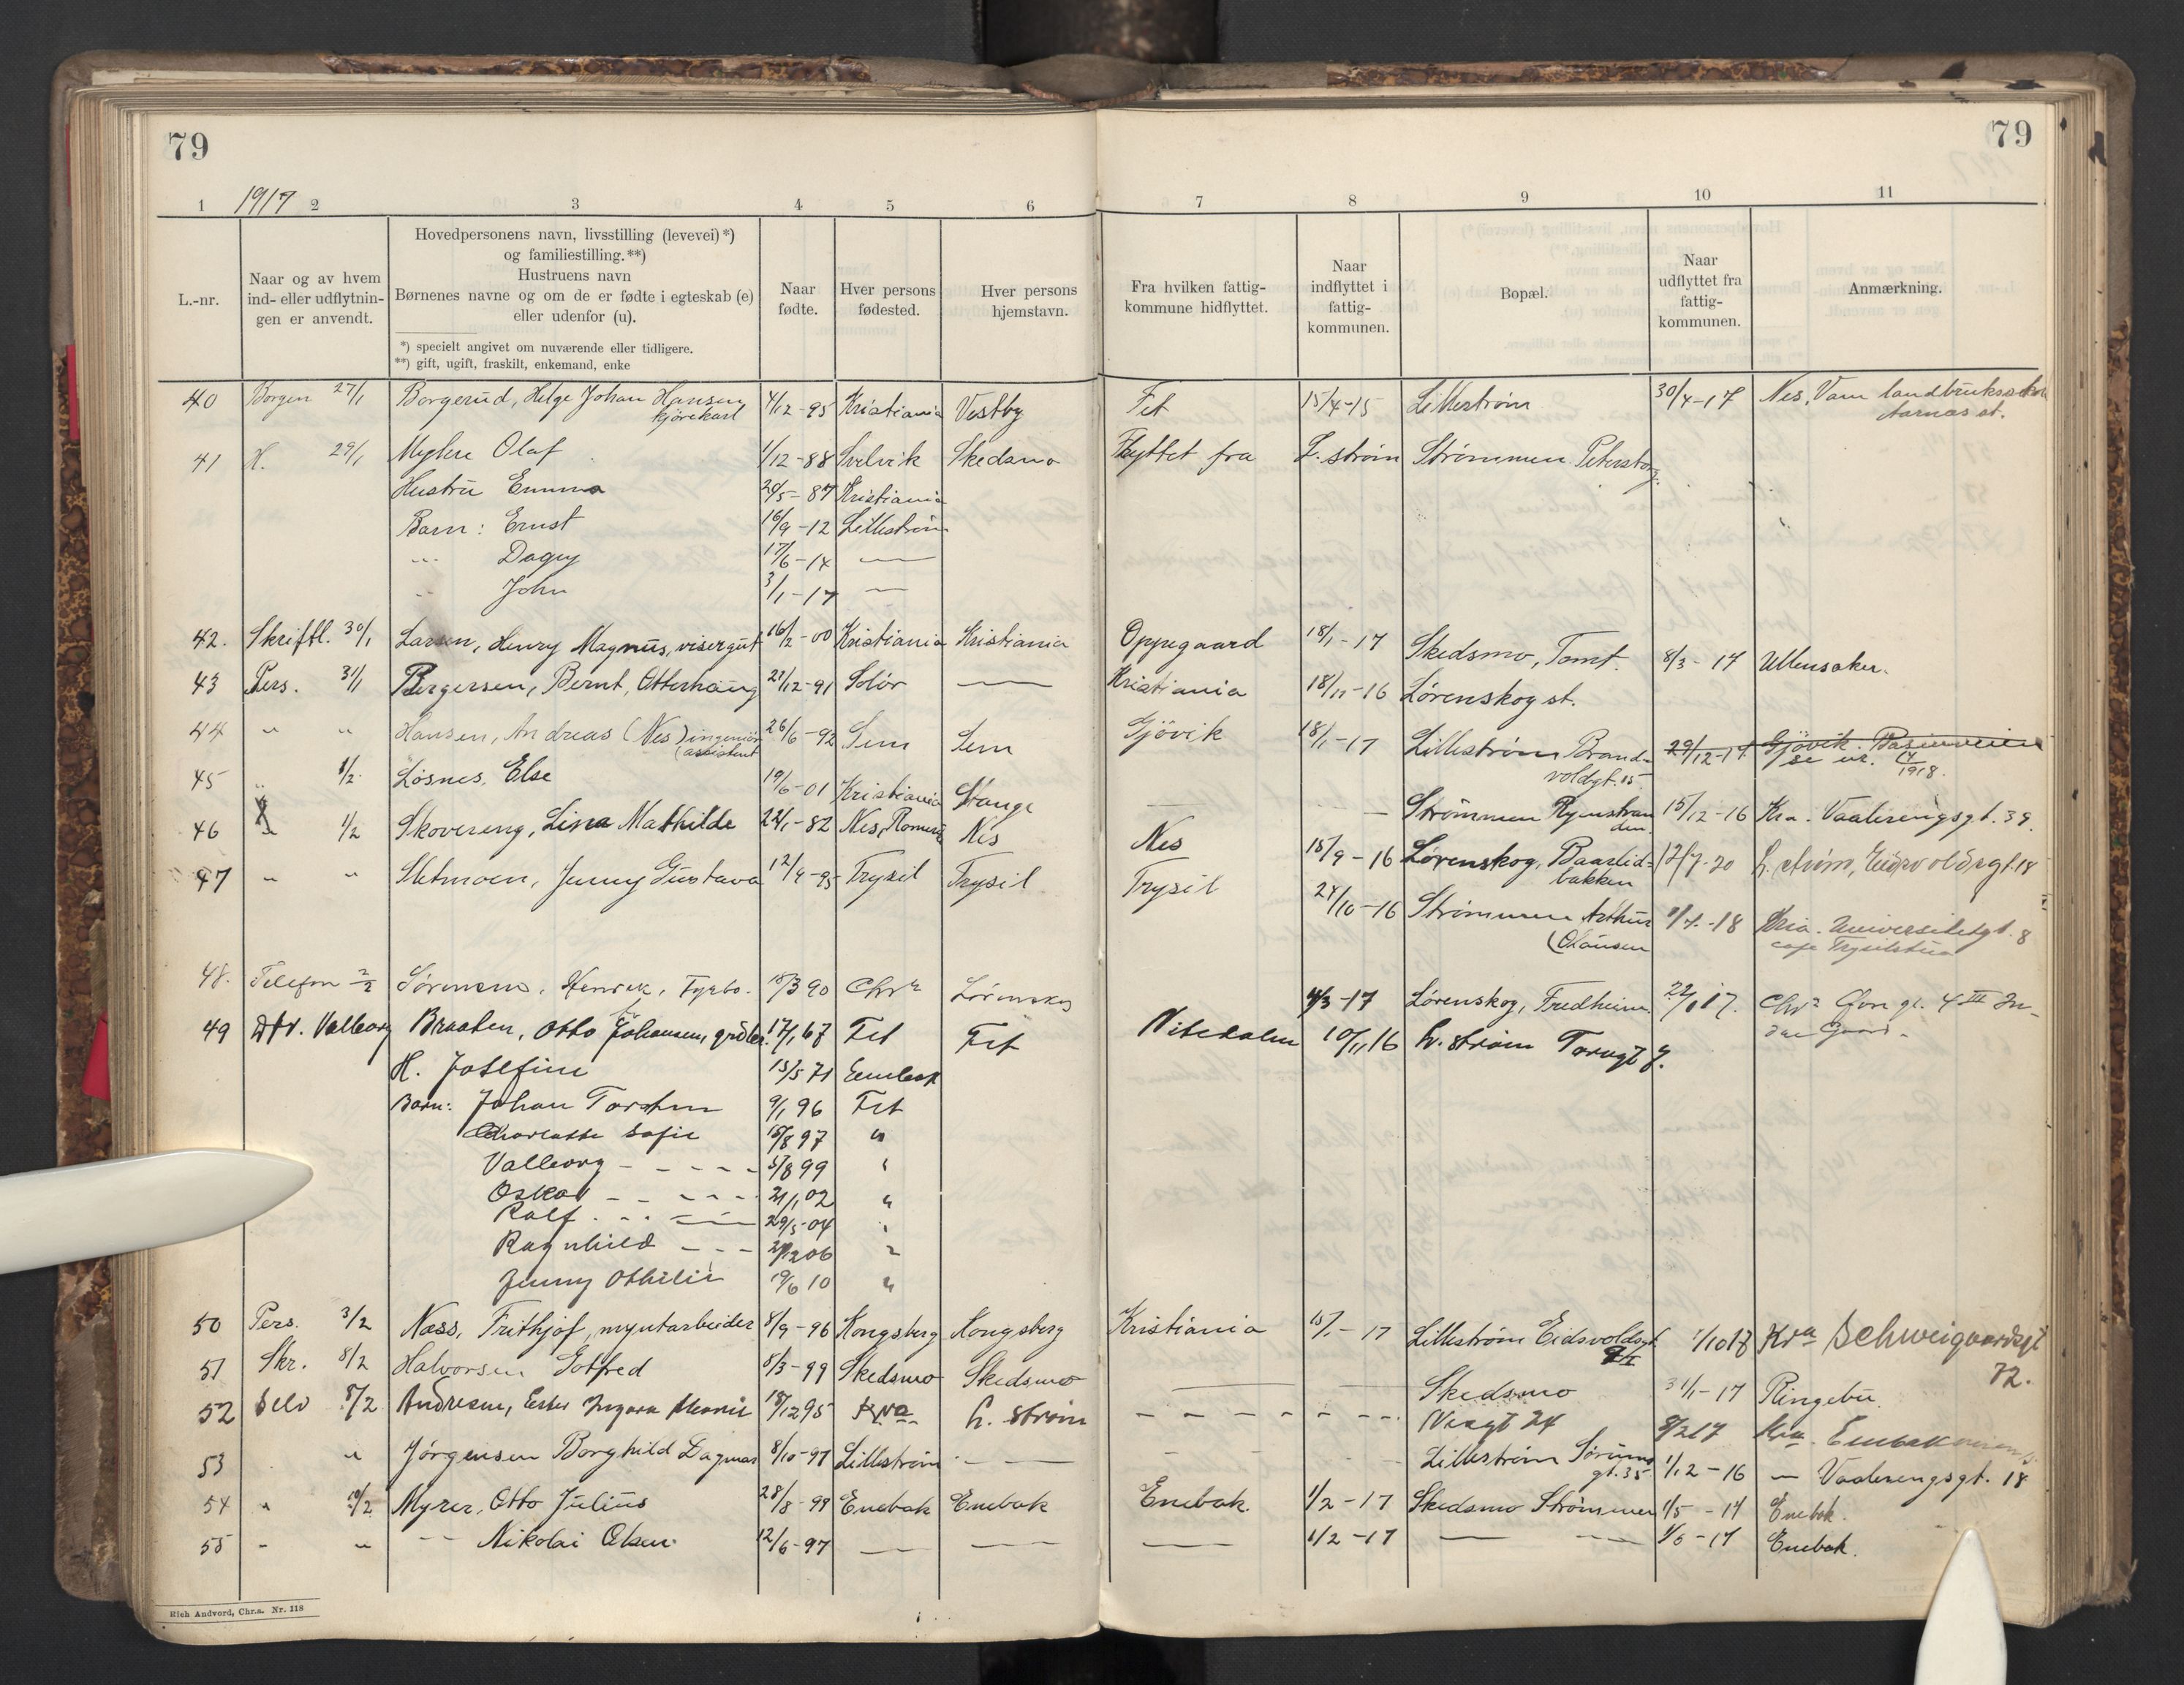 79
79
1917
1 2 3 4 5 6 7 8 9 10 11
L.-nr.
Naar og av hvem
ind- eller udflytnin-
gen er anvendt.
Hovedpersonens navn, livsstilling (levevei)*)
og familiestilling.**)
Hustruens navn
Børnenes navne og om de er fødte i egteskab (e)
eller udenfor (u).
*) specielt angivet om nuværende eller tidligere.
**) gift, ugift, fraskilt, enkemand, enke
Naar
fødte.
Hver persons
fødested.
Hver persons
hjemstavn.
Fra hvilken fattig-
kommune hidflyttet.
Naar
indflyttet i
fattig-
kommunen.
Bopæl.
Naar
udflyttet fra
fattig-
kommunen.
Anmærkning.
40 Borgen 27/1 Borgerud, Helge Johan Hansen 4/12-95 Kristiania Vestby Fet 15/4-15 Lillestrøm 30/4-17 Nes, Vam landbruksskole
kjørekarl Aarnæs st.
41 H. 29/1 Myhre Olaf 1/12-88 Svelvik Skedsmo Flyttet fra L. strøm Strømmen Petersborg.
Hustru Emma 20/5-87 Kristiania
Barn: Ernst 16/9-12 Lillestrøm
... Dagny 17/6-14 —
.. John 3/1-17 —
42. Skriftl. 30/1 Larsen, Henry Magnus, visergut 16/2-00 Kristiania Kristiania Oppegaard 18/1-17 Skedsmo, Tomt. 8/3-17 Ullensaker.
43 Pers. 31/1 Bergersen, Bernt, Otterhaug 21/12-91 Solør — Kristiania 18/11-16 Lørenskog st.
44 " " Hansen, Andreas (Nes) ingeniør 26/6-92 Sem Sem Gjövik 18/1-17 Lillestrøm Brand- 29/12-17 Gjövik.
(assistent voldgt. 15 se nr. 1918.
45 " 1/2 Løsnes, Else 19/6-01 Kristiania Stange — — Strømmen Rymstran 15/12-16 Kra. Vaalerengsgt. 39.
den
46 " 1/2 Skovereng, Lina Mathilde 22/1-82 Nes, Romerik Nes Nes 15/9-16 Lørenskog, Baarlid- 12/7-20 L. strøm, Eidsvoldsgt. 18
bakken
47 " " Sletmoen, Jenny Gustava 12/4-95 Trysil Trysil Trysil 24/10-16 Strømmen Arthur 1/4-18 Kria. Universitetsgt. 8
(Clausen cafe Trysilstua
48. Telefon 2/2 Sørensen, Henrik, Fyrbø. 18/3 90 Chra Lørenskog 4/3-17 Lørenskog, Fredheim 22/6 17. Chra
49 Dtr. Valborg Braaten, Otto Johansen, grdbr. 17/1 67 Fet Fet Nitedalen 10/11 16 L. strøm Torvgt 7.
H. Josefine 13/5 71 Enebak
Barn: Johan Torsten 9/1 96 Fet
Charlotte Sofie 15/8 97 "
Valborg - - - - - 5/8 99 "
Oskar - - - - - 21/1 02 "
Ralf . - - — 29/5-04 "
Ragnhild - - - 29/12 06 "
Jenny Othilie 19/6 10 "
50 Pers. 3/2 Næss, Frithjof, myntarbeider 8/9-96 Kongsberg Kongsberg Kristiania 15/1-17 Lillestrøm Eidsvoldsgt. 1/10 17 Kra Schweigaardsgt
72.
51 Skr. 8/2 Halvorsen Gotfred 8/3-99 Skedsmo Skedsmo — — Skedsmo 31/1-17 Ringebu.
52 Selv 8/2 Andresen, Ester Ingara Marie 18/12 95 Kra L. strøm - - - - - - - Nesgt 24 8/2 17 Kra. Enebakveien
53 " Jørgensen Borghild Dagmar 8/10-97 Lillestrøm — - - - Lillestrøm Sørum 1/12-16 — Vaalerengsgt. 18
gt. 35
54 " 10/2 Myrer, Otto Julius 28/8-99 Enebak Enebak Enebak. 1/2-17 Skedsmo Strømmen 1/5-17 Enebak.
55 - " -- Nikolai Olsen 12/6-97 — — — 1/2-17 — — 1/5-17 Enebak.
Rich Andvord, Chr.a. Nr. 118